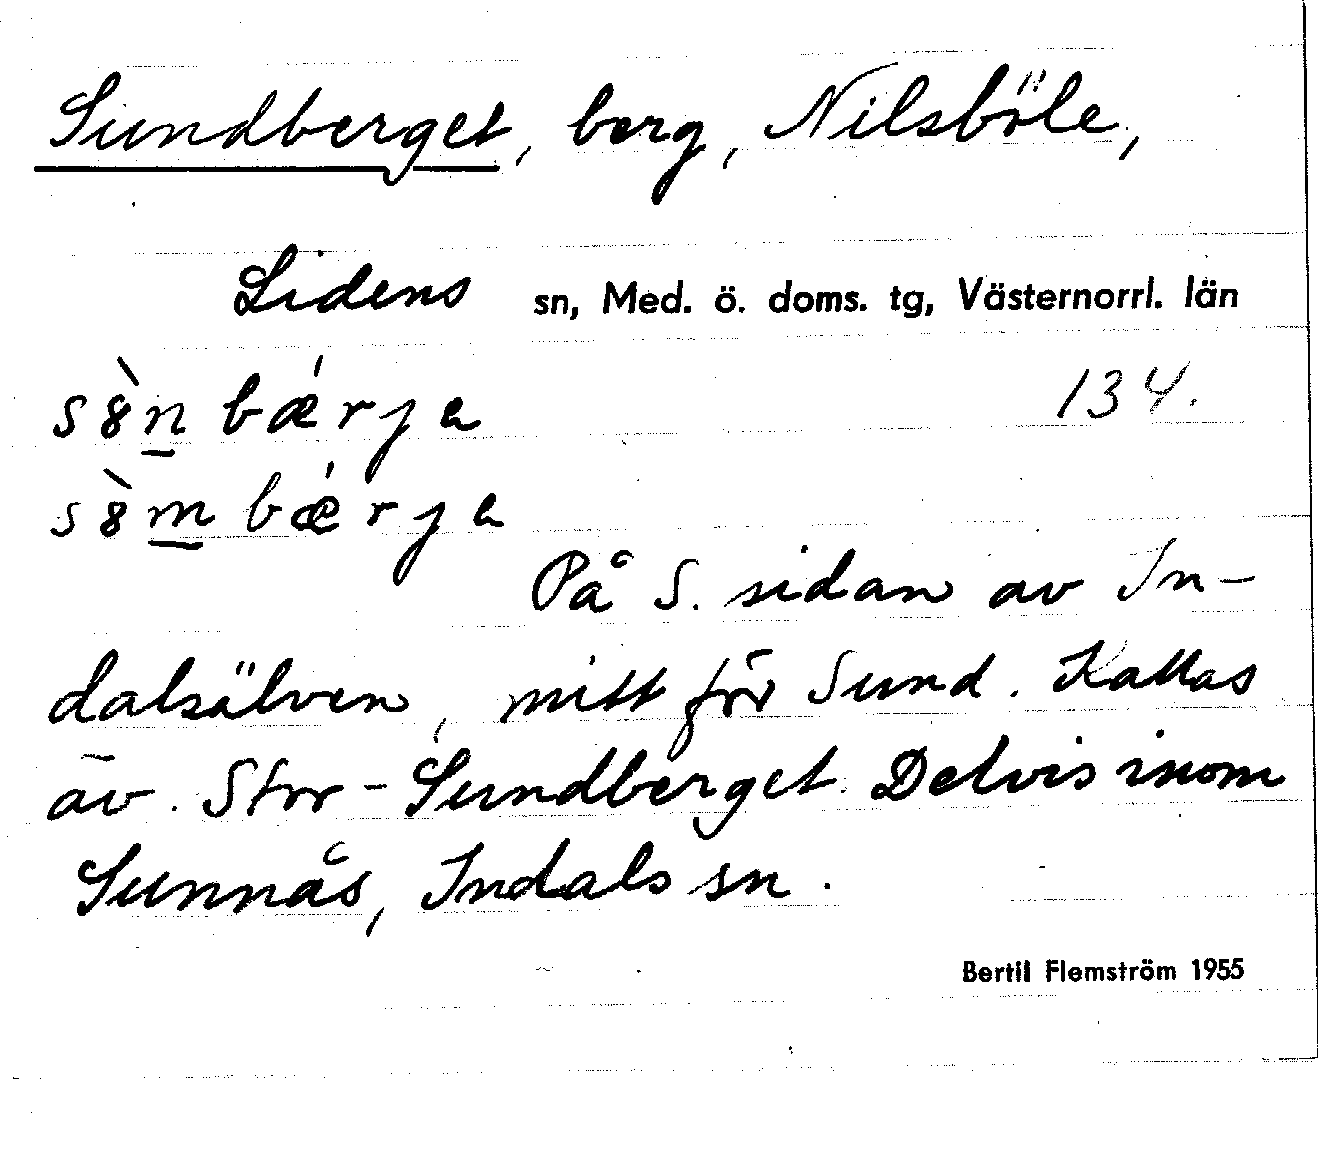 Sundberget, berg, Nilsböle,
Lidens sn, Med. ö. doms. tg, Västernorrl. län
134.
På S. sidan av In-
dalsälven, mitt för Sund. Kallas
äv. Stor-Sundberget. Delvis inom
Sunnås, Indals sn.
Bertil Flemström 1955